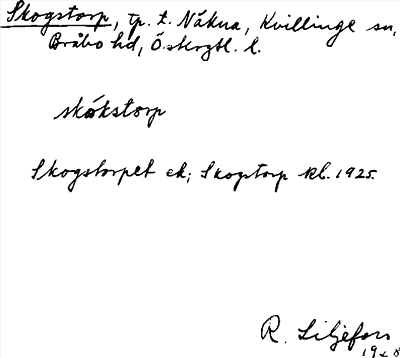 Skogstorp, tp. t. Näkna, Kvillinge sn,
Bråbo hd, Östergtl. l.
skókstorp
Skogstorpet ek; Skogstorp kl. 1925.
R. Liljefors